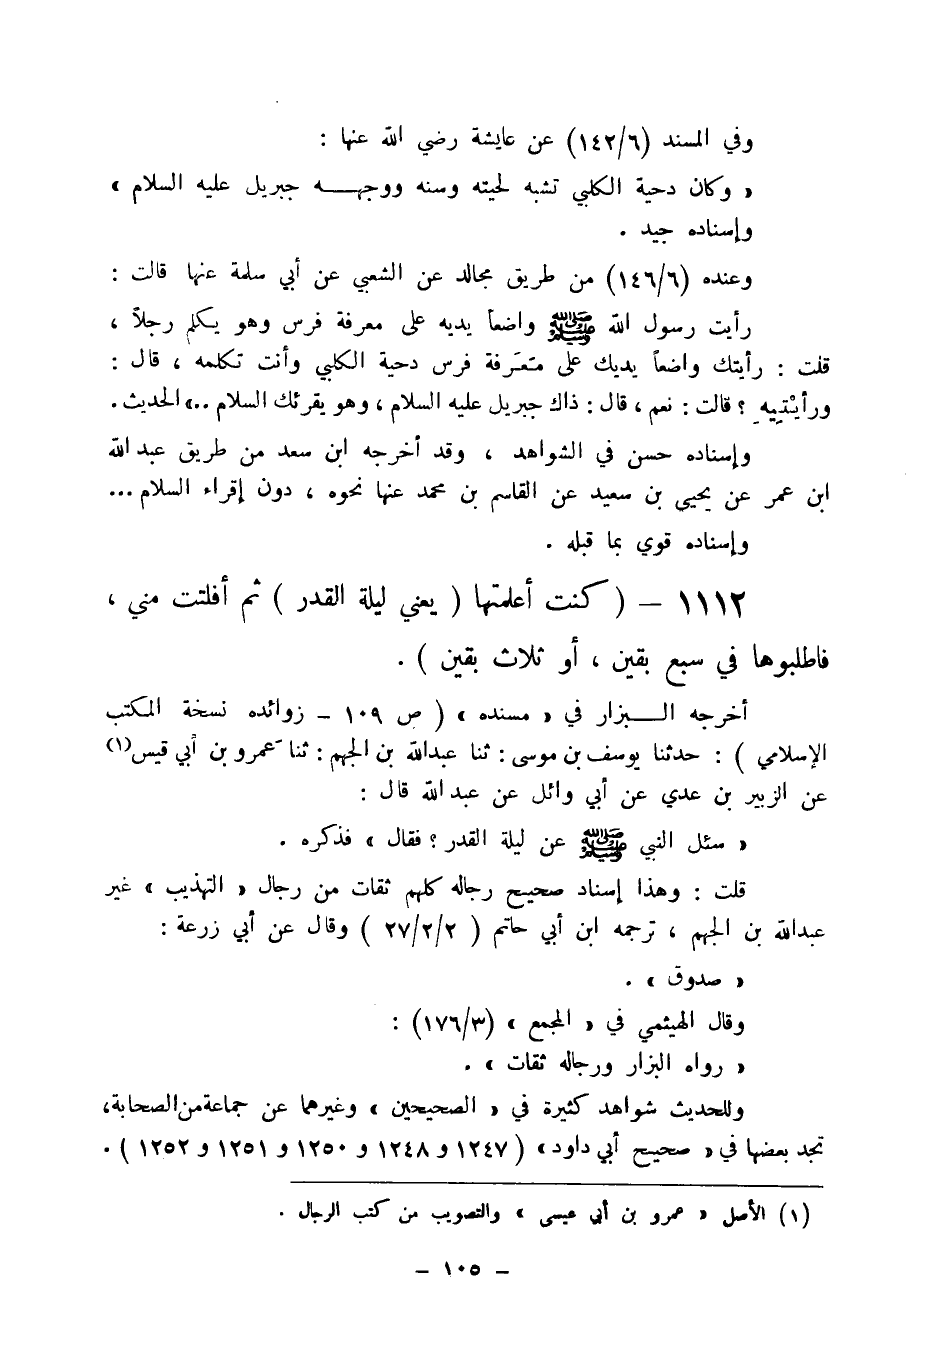 وفي المسند (١٤٢/٦) عن عايشة رضي الله عنها :
« وكان دحية الكلبي تشبه لحيته وسنه ووجهـــه جبريل عليه السلام »
وإسناده جيد .
وعنده (١٤٦/٦) من طريق مجالد عن الشعبي عن أبي سلمة عنها قالت :
رأيت رسول الله ﷺ واضعاً يديه على معرفة فرس وهو يكلم رجلاً ،
قلت : رأيتك واضعاً يديك على مَعرَفة فرس دحية الكلبي وأنت تكلمه ، قال :
ورأيْتِيهِ ؟ قالت : نعم ، قال : ذاك جبريل عليه السلام ، وهو يقرئك السلام ..» الحديث .
وإسناده حسن في الشواهد ، وقد أخرجه ابن سعد من طريق عبد الله
ابن عمر عن يحيى بن سعيد عن القاسم بن محمد عنها نحوه ، دون إقراء السلام ...
وإسناده قوي بما قبله .
١١١٢ – ( كنت أعلمتها ( يعني ليلة القدر ) ثم أفلتت مني ،
فاطلبوها في سبع بقين ، أو ثلاث بقين ) .
أخرجه البـــزار في « مسنده » ( ص ١٠٩ – زوائده نسخة المكتب
الإسلامي ) : حدثنا يوسف بن موسى : ثنا عبدالله بن الجهم : ثنا عَمرو بن أبي قيس(١)
عن الزبير بن عدي عن أبي وائل عن عبد الله قال :
« سئل النبي ﷺ عن ليلة القدر ؟ فقال » فذكره .
قلت : وهذا إسناد صحيح رجاله كلهم ثقات من رجال « التهذيب » غير
عبدالله بن الجهم ، ترجمه ابن أبي حاتم ( ٢٧/٢/٢ ) وقال عن أبي زرعة :
« صدوق » .
وقال الهيثمي في « المجمع » (١٧٦/٣) :
« رواه البزار ورجاله ثقات » .
وللحديث شواهد كثيرة في « الصحيحين » وغيرهما عن جماعة من الصحابة ،
تجد بعضها في « صحيح أبي داود » ( ١٢٤٧ و ١٢٤٨ و ١٢٥٠ و ١٢٥١ و ١٢٥٢ ) .
(١) الأصل « عمرو بن أبي عيسى » والتصويب من كتب الرجال .
– ١٠٥ –